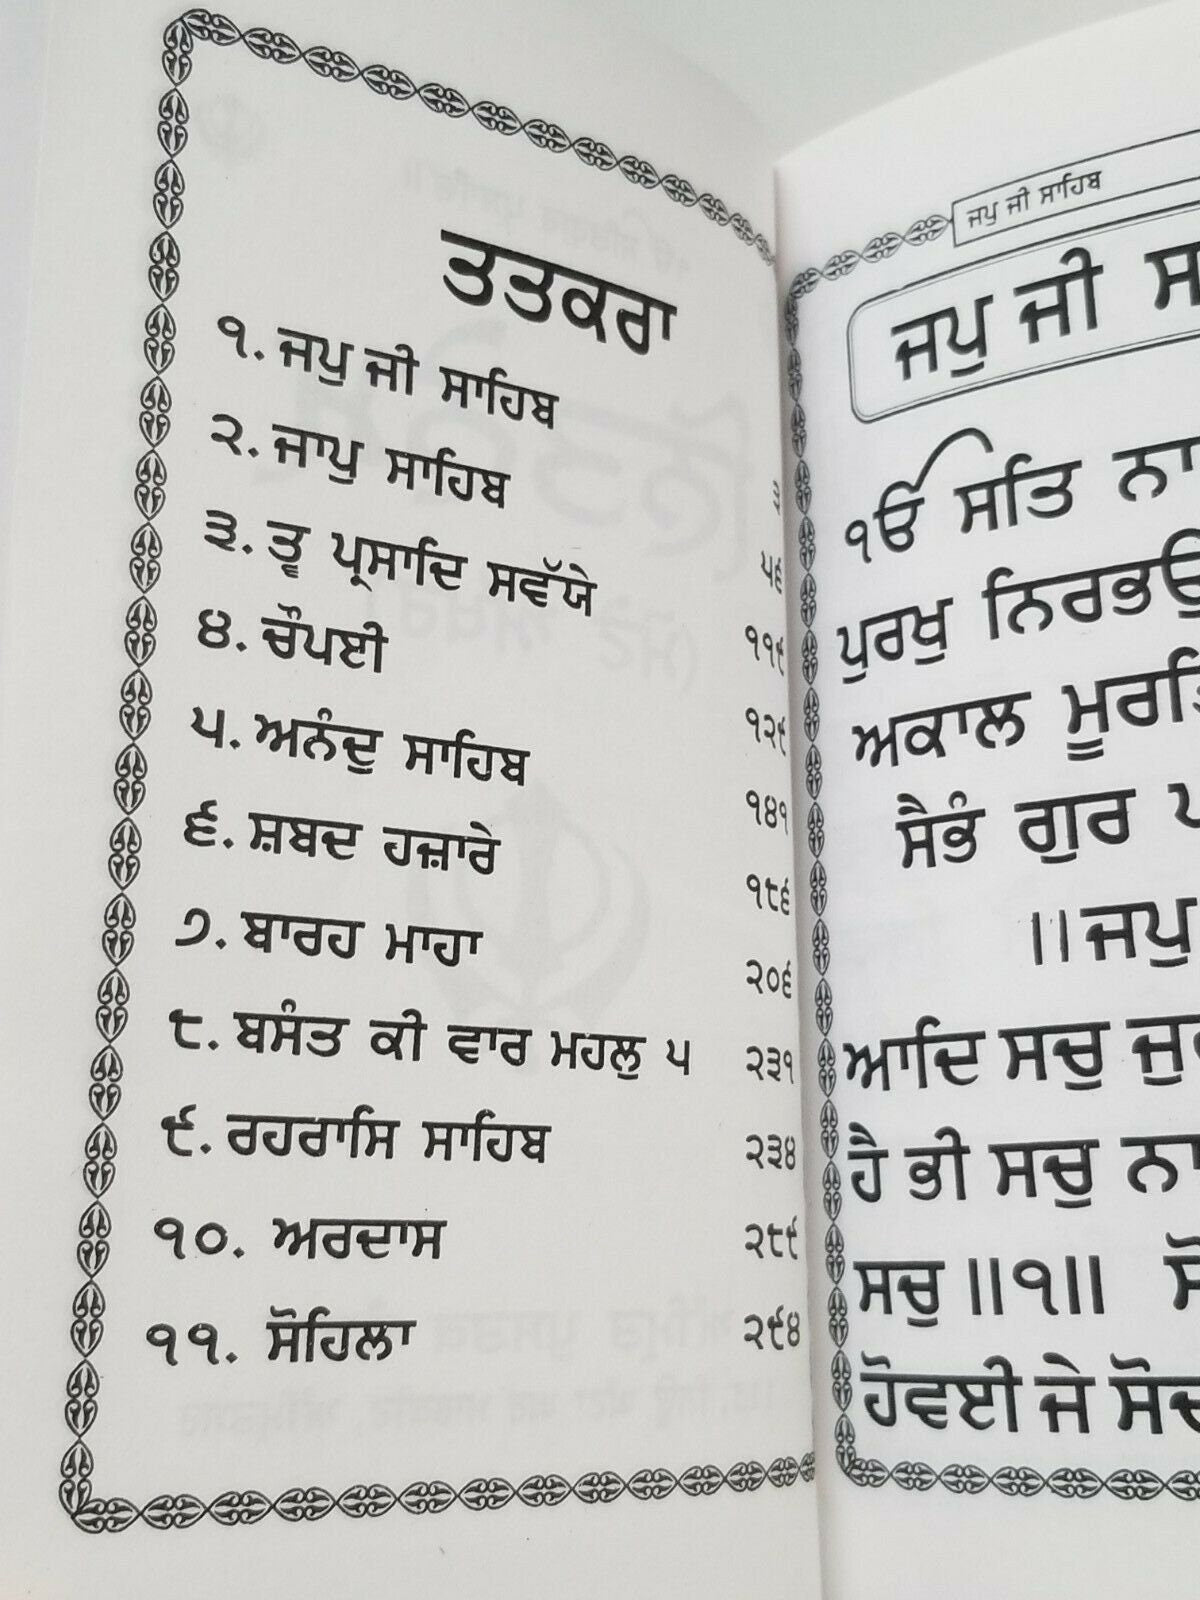 ਤਤਕਰਾ
੧. ਜਪੁ ਜੀ ਸਾਹਿਬ ੩
੨. ਜਾਪੁ ਸਾਹਿਬ ੫੬
੩. ਤ੍ਵ ਪ੍ਰਸਾਦਿ ਸਵੱਯੇ ੧੧੯
੪. ਚੌਪਈ ੧੨੯
੫. ਅਨੰਦੁ ਸਾਹਿਬ ੧੪੧
੬. ਸ਼ਬਦ ਹਜ਼ਾਰੇ ੧੮੬
੭. ਬਾਰਹ ਮਾਹਾ ੨੦੬
੮. ਬਸੰਤ ਕੀ ਵਾਰ ਮਹਲੁ ੫ ੨੩੧
੯. ਰਹਰਾਸਿ ਸਾਹਿਬ ੨੩੪
੧੦. ਅਰਦਾਸ ੨੮੯
੧੧. ਸੋਹਿਲਾ ੨੯੪
ਜਪੁ ਜੀ ਸਾਹਿਬ
ਜਪੁ ਜੀ
ੴ ਸਤਿ
ਪੁਰਖੁ ਨਿਰਭਉ
ਅਕਾਲ ਮੂਰਤਿ
ਸੈਭੰ ਗੁਰ
॥ਜਪੁ
ਆਦਿ ਸਚੁ
ਹੈ ਭੀ ਸਚੁ
ਸਚੁ ॥੧॥
ਹੋਵਈ ਜੇ